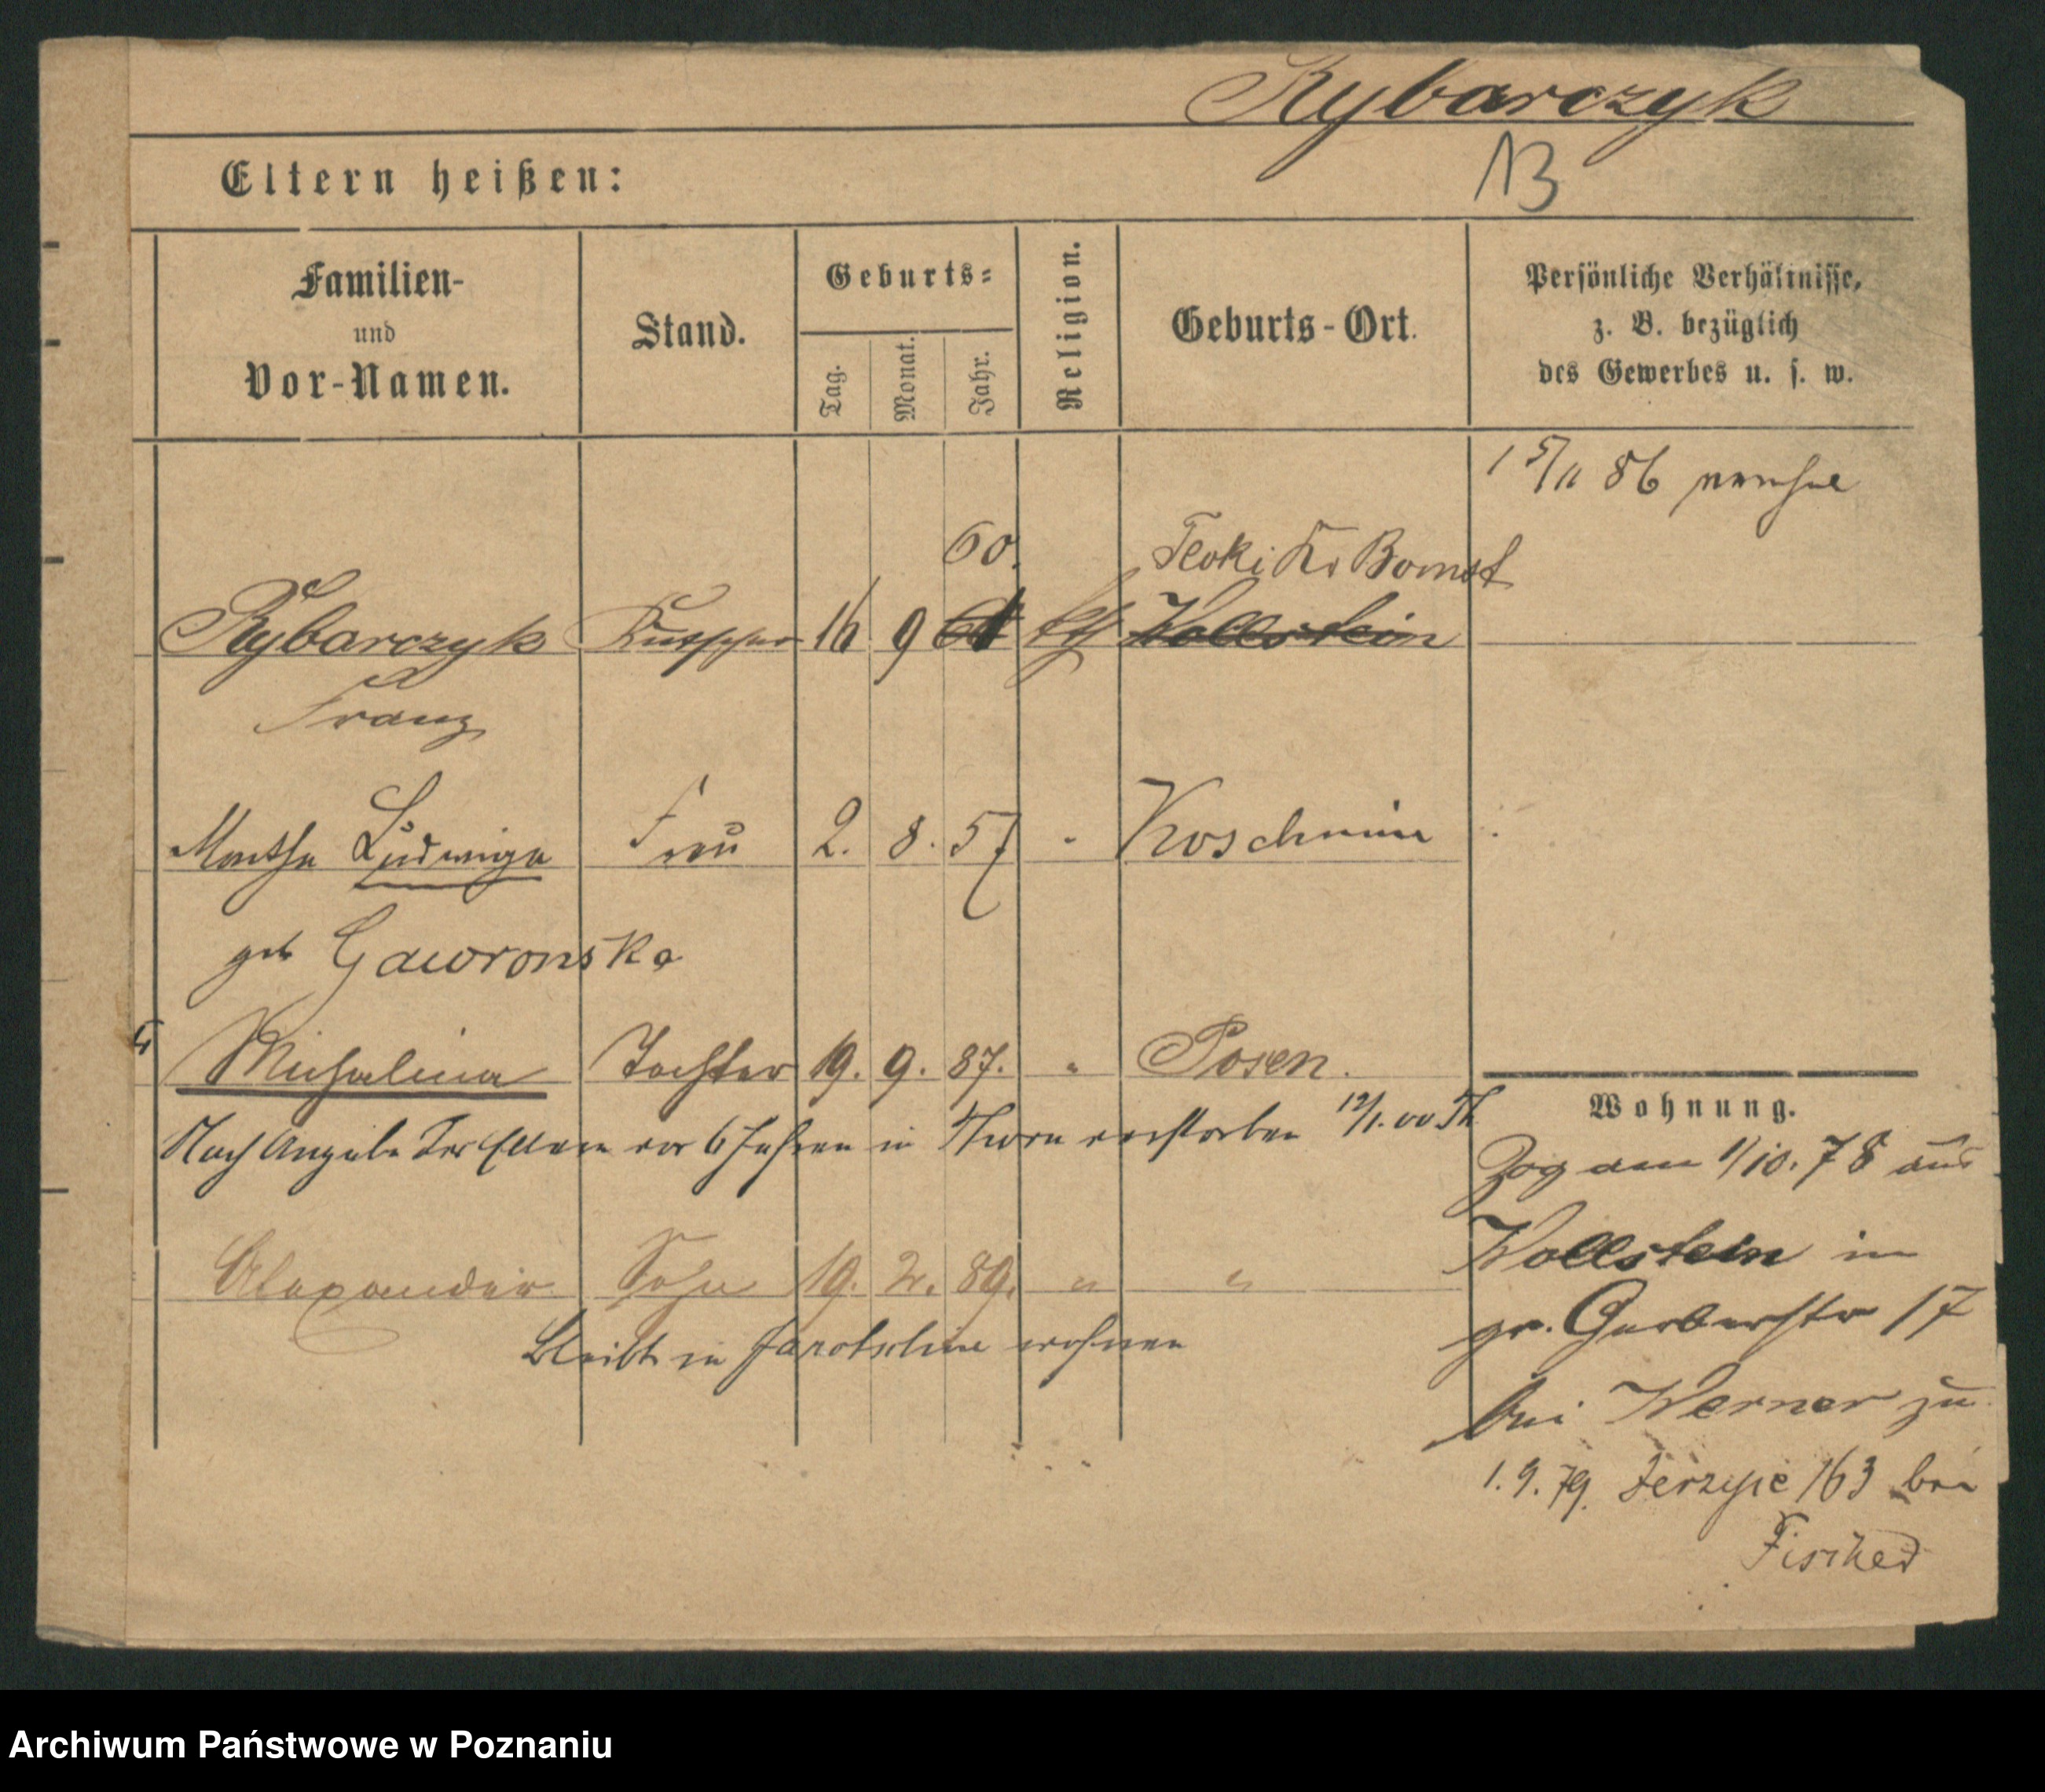 Rybarczyk
13
Eltern heißen:
Familien-
und
Vor-Namen.
Stand.
Geburts-
Tag.
Monat.
Jahr.
Religion.
Geburts-Ort.
Persönliche Verhältnisse,
z. B. bezüglich
des Gewerbes u. s. w.
1 5/11 86
60. Tloki Kr Bomst
Rybarczyk Kutscher 16 9 kth Wollstein
Franz
Ludwiga Frau 2. 8. 57 " Koschmin
geb Gaworonska
Michalina Tochter 19. 9. 87. " Posen.
Nach Angabe der Eltern vor 6 Jahren in Thorn verstorben 12/1. 00 Th
Alexander Sohn 19. 2. 89. " "
bleibt in Jarotschin wohnen
Wohnung.
Zog am 1/10. 78 aus
Wollstein in
gr. Gerberstr 17
bei Werner zu
1. 9. 79. Jerzyce 163 bei
Fischer
Archiwum Państwowe w Poznaniu